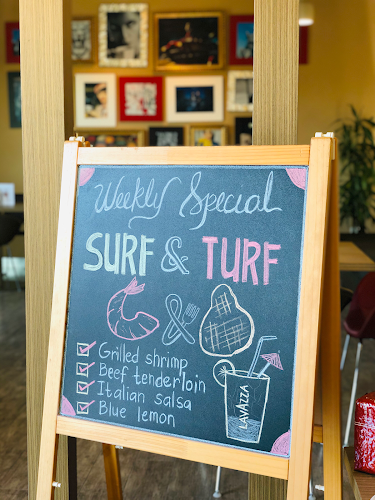 Weekly Special
SURF & TURF
Grilled shrimp
Beef tenderloin
Italian salsa
Blue lemon
LAVAZZA